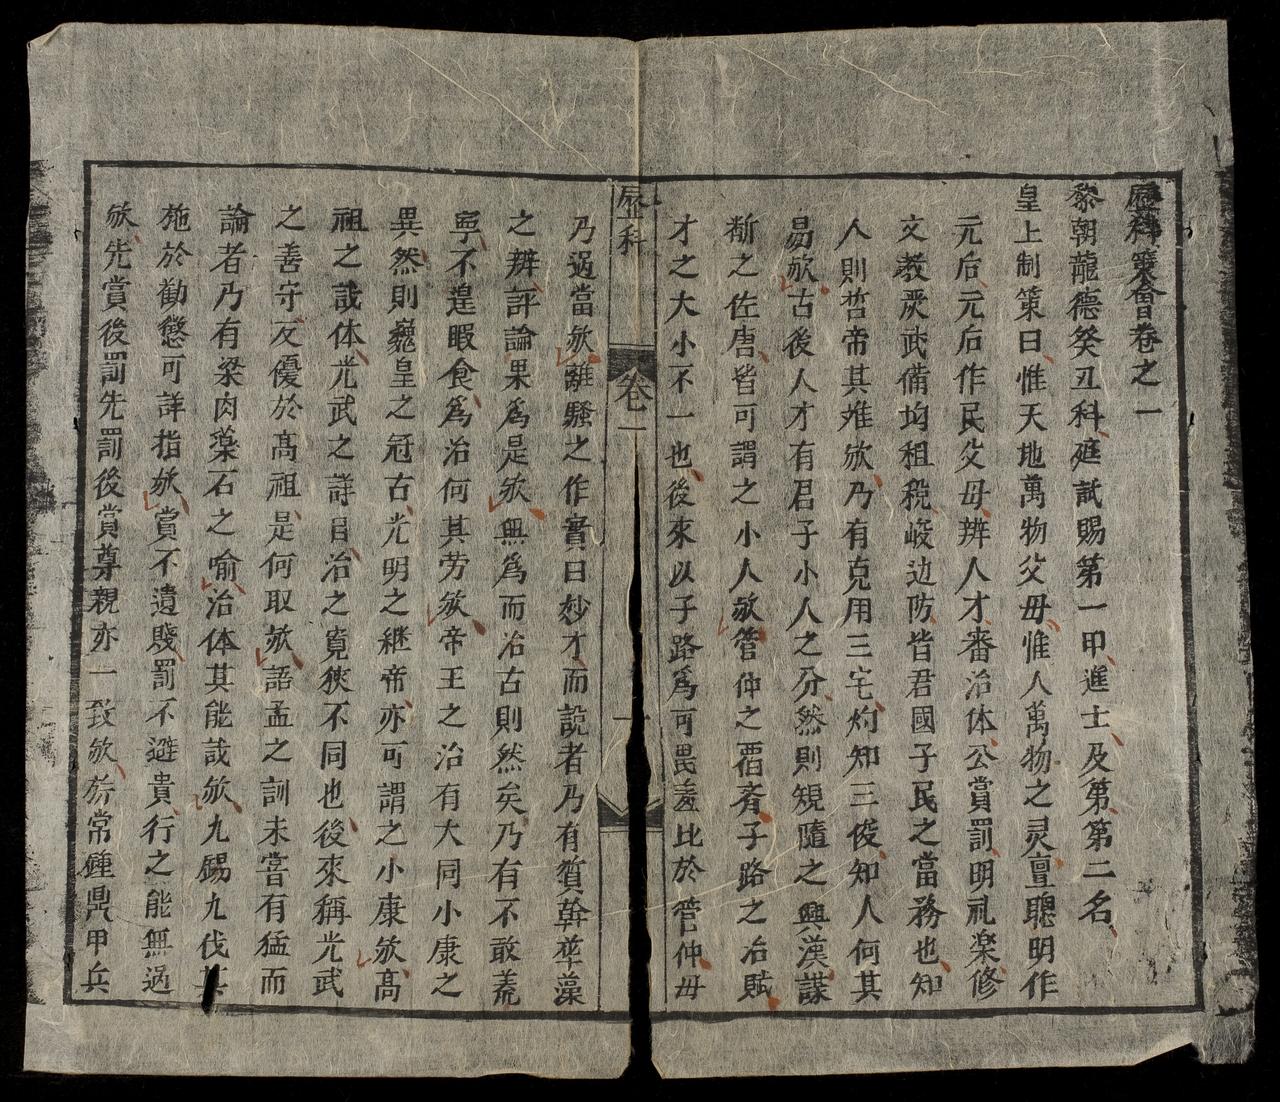 歷科策畧卷之一
黎朝龍德癸丑科庭試賜第一甲進士及第第二名
皇上制策曰惟天地萬物父毋惟人萬物之灵亶聰明作
元后元后作民父毋辨人才審治体公賞罰明礼楽修
文教严武備均租税峻边防皆君國子民之當務也知
人則哲帝其难欤乃有克用三宅灼知三俊知人何其
易欤古後人才有君子小人之分然則規隨之興漢謀
斷之佐唐皆可謂之小人欤管仲之覇齊子路之治賦
才之大小不一也後來以子路爲可畏羞比於管仲毋
歷科 卷一 一
乃過當欤離騷之作實曰妙才而說者乃有質幹華藻
之辨評論果爲是欤無爲而治古則然矣乃有不敢荒
寧不遑暇食爲治何其劳欤帝王之治有大同小康之
異然則巍皇之冠古光明之継帝亦可謂之小康欤髙
祖之㦲体光武之詳目治之寬狹不同也後來稱光武
之善守反優於髙祖是何取欤語孟之訓未嘗有猛而
論者乃有梁肉藥石之喻治体其能㦲欤九錫九伐其
施於勸懲可詳指欤賞不遺賤罰不避貴行之能無過
欤先賞後罰先罰後賞尊親亦一致欤旂常鍾鼎甲兵